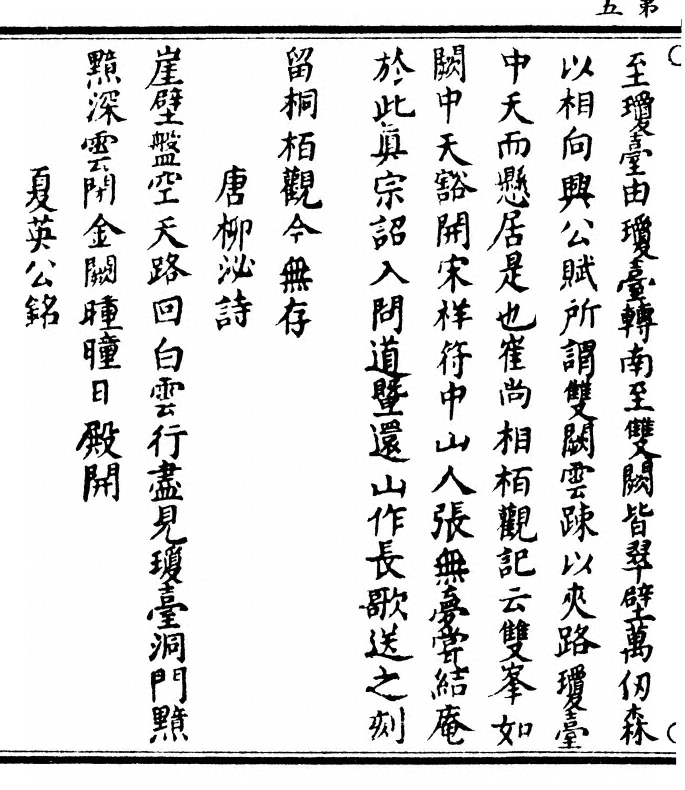 第五
至瓊臺由瓊臺轉南至雙闕皆翠壁萬仞森
以相向興公賦所謂雙闕雲踈以夾路瓊臺
中天而懸居是也崔尚相栢觀記云雙峯如
闕中天豁開宋祥符中山人張無夢甞結庵
於此眞宗詔入問道暨還山作長歌送之刻
留桐栢觀今無存
唐柳泌詩
崖壁盤空天路回白雲行盡見瓊臺洞門黯
黯深雲閉金闕曈曈日殿開
夏英公銘